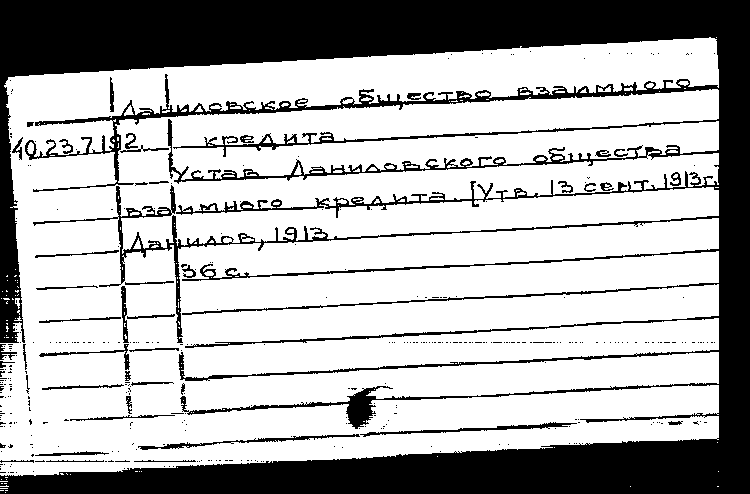 Даниловское общество взаимного
40.23.7.192. кредита.
Устав Даниловского общества
взаимного кредита. [Утв. 13 сент. 1913г.]
Данилов, 1913.
36 с.